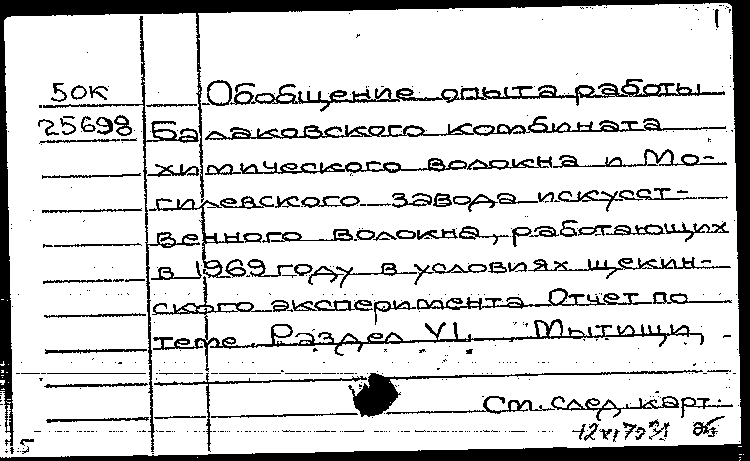 1
50к Обобщение опыта работы
25698 Балаковского комбината
химического волокна и Мо-
гилевского завода искусст-
венного волокна, работающих
в 1969 году в условиях щекин-
ского эксперимента Отчет по
теме. Раздел VI. Мытищи,
См. след. карт.